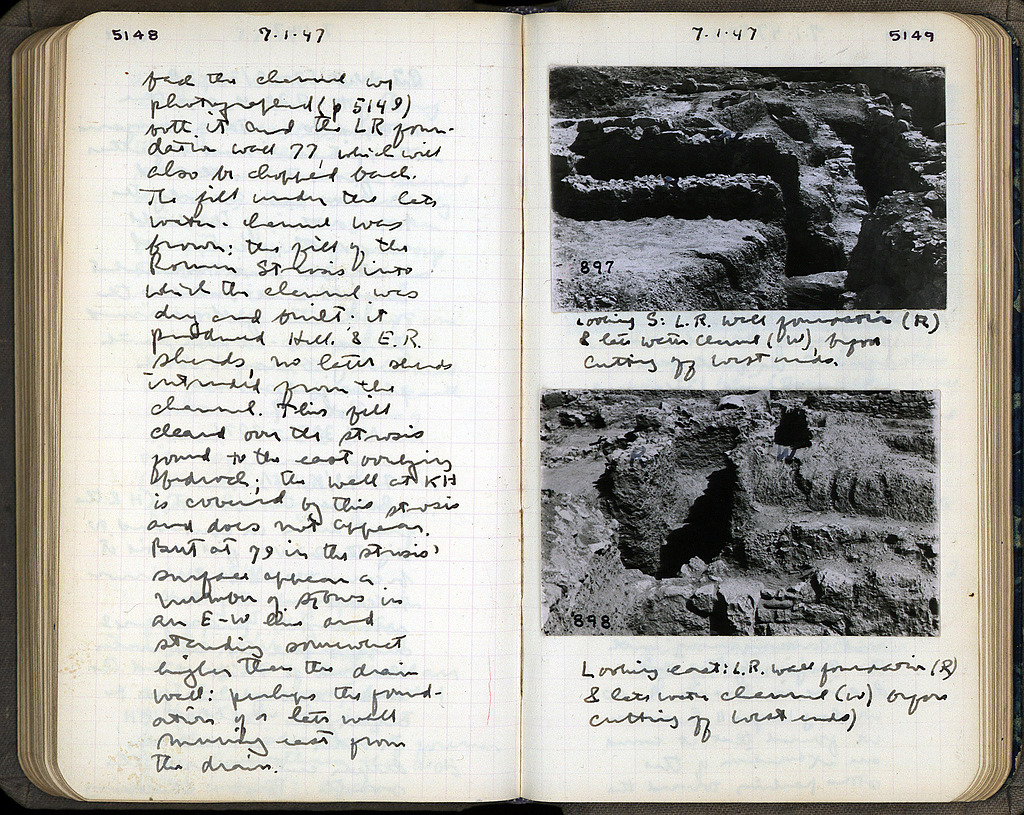 5148
7·1·47
had the channel
photographed (p 5149)
both it and the LR foun-
dation wall 77, which will
also be chopped back.
The fill under the late
water-channel was
brown: the fill of the
Roman Strosis into
which the channel was
dug and built: it
produced Hell. & E.R.
sherds, no later sherds
intruded from the
channel. This fill
cleared over the strosis
found to the east overlying
bedrock; the wall at KH
is covered by this strosis
and does not appear.
But at 79 in the strosis'
surface appear a
number of stones in
an E-W line and
standing somewhat
higher than the drain
wall: perhaps the found-
ation of a late wall
running east from
the drain.
7·1·47
5149
R
W
897
Looking S: L.R. wall foundation (R)
& late water channel (W), before
cutting off west ends.
R
W
898
Looking east: L.R. wall foundation (R)
& late water channel (W) before
cutting off west ends)